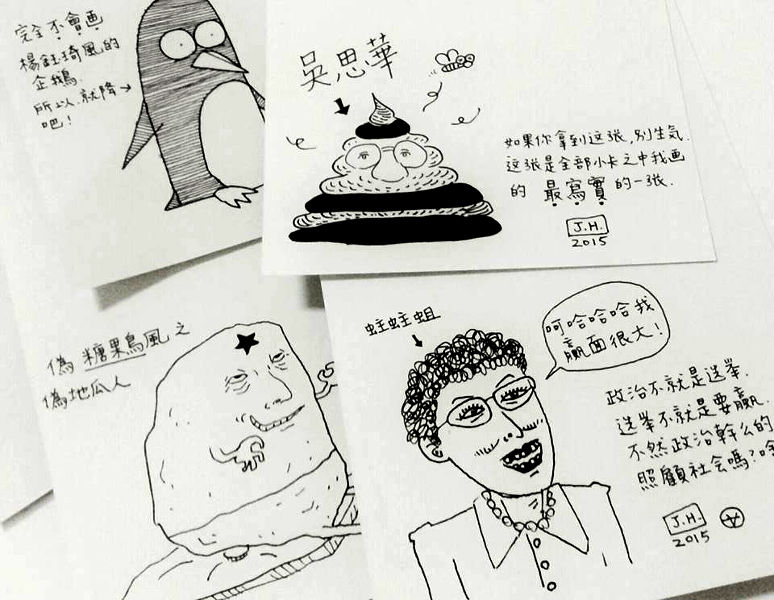 完全不會画
楊鈺琦風的
企鵝.
所以.就降
吧!
吳思華
如果你拿到这张,别生氣.
这张是全部小卡之中我画
的 最寫實 的一张.
J.H.
2015
偽 糖果鳥風 之
偽地瓜人
蛀蛀蛆
呵哈哈哈我
贏面很大!
政治不就是选举.
选举不就是要贏.
不然政治幹么的
照顧社会嗎?哈
J.H.
2015